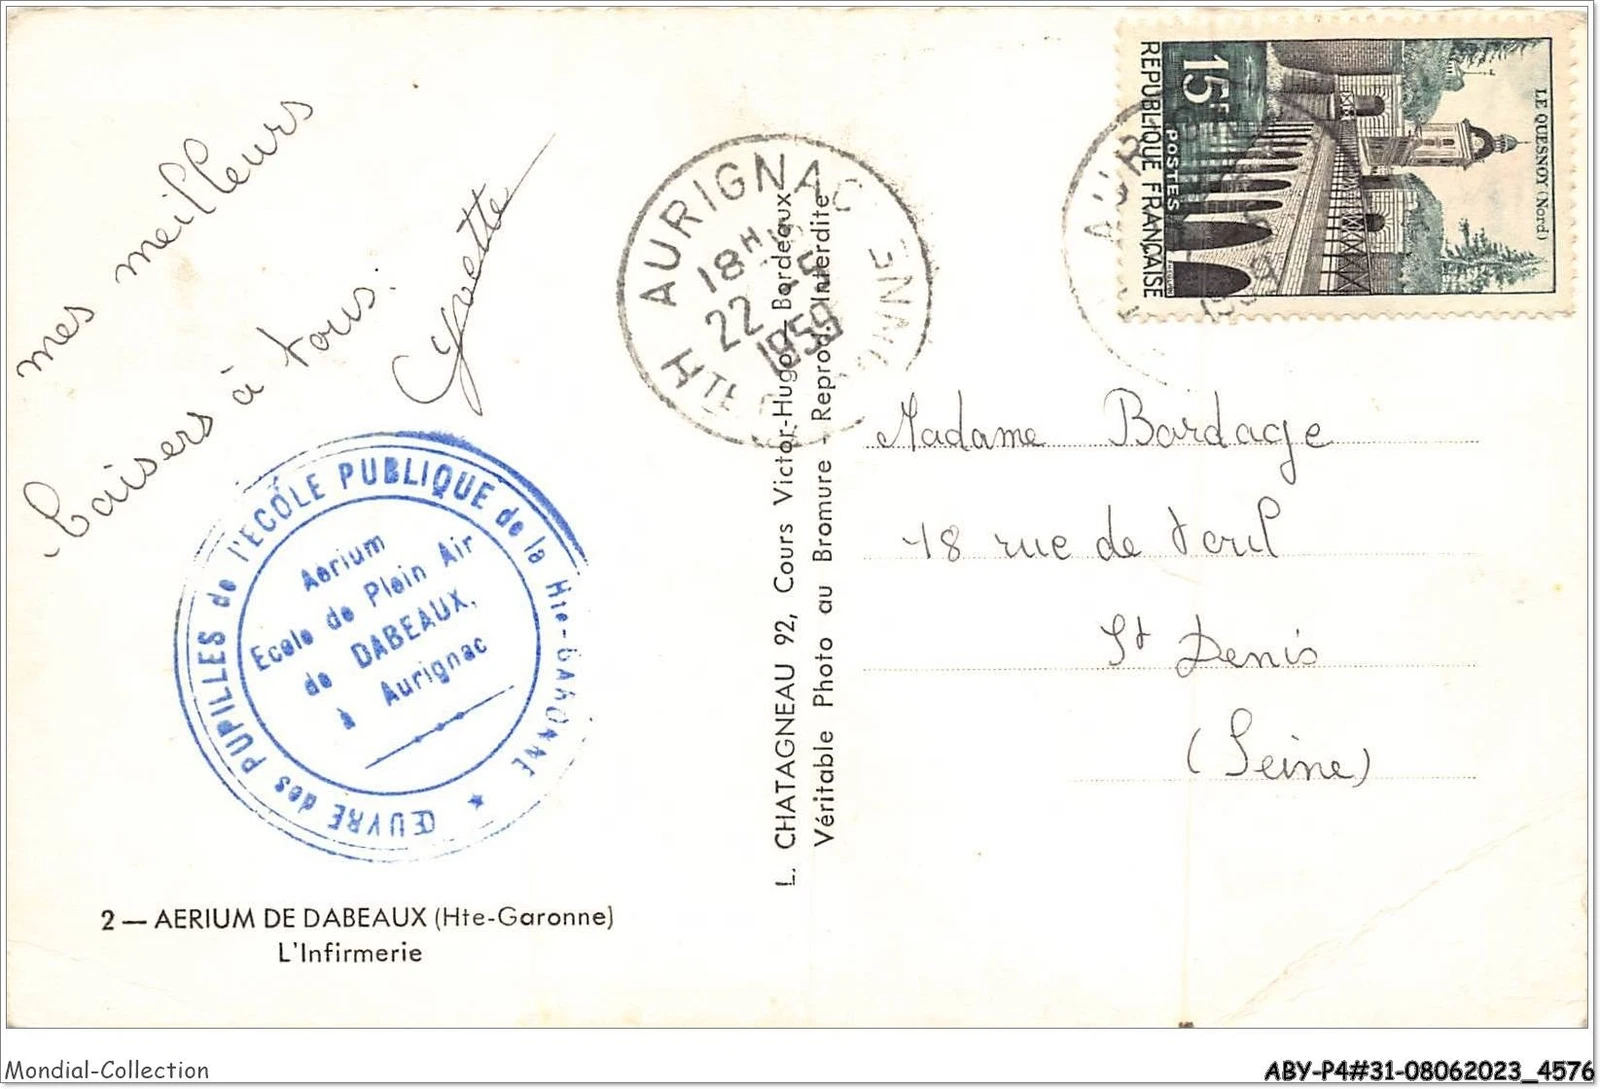 mes meilleurs
baisers à tous.
Yvette
ŒUVRE des PUPILLES de l'ECOLE PUBLIQUE de la Hte-GARONNE
Aerium
Ecole de Plein Air
de DABEAUX,
à Aurignac
2 — AERIUM DE DABEAUX (Hte-Garonne)
L'Infirmerie
AURIGNAC
18H
22 - 5
1959
HTE
L. CHATAGNEAU 92, Cours Victor-Hugo, Bordeaux
Véritable Photo au Bromure - Reprod. Interdite
15F
POSTES
REPUBLIQUE FRANÇAISE
LE QUESNOY (Nord)
Madame Bardage
18 rue de
St Denis
(Seine)
Mondial-Collection
ABY-P4#31-08062023_4576